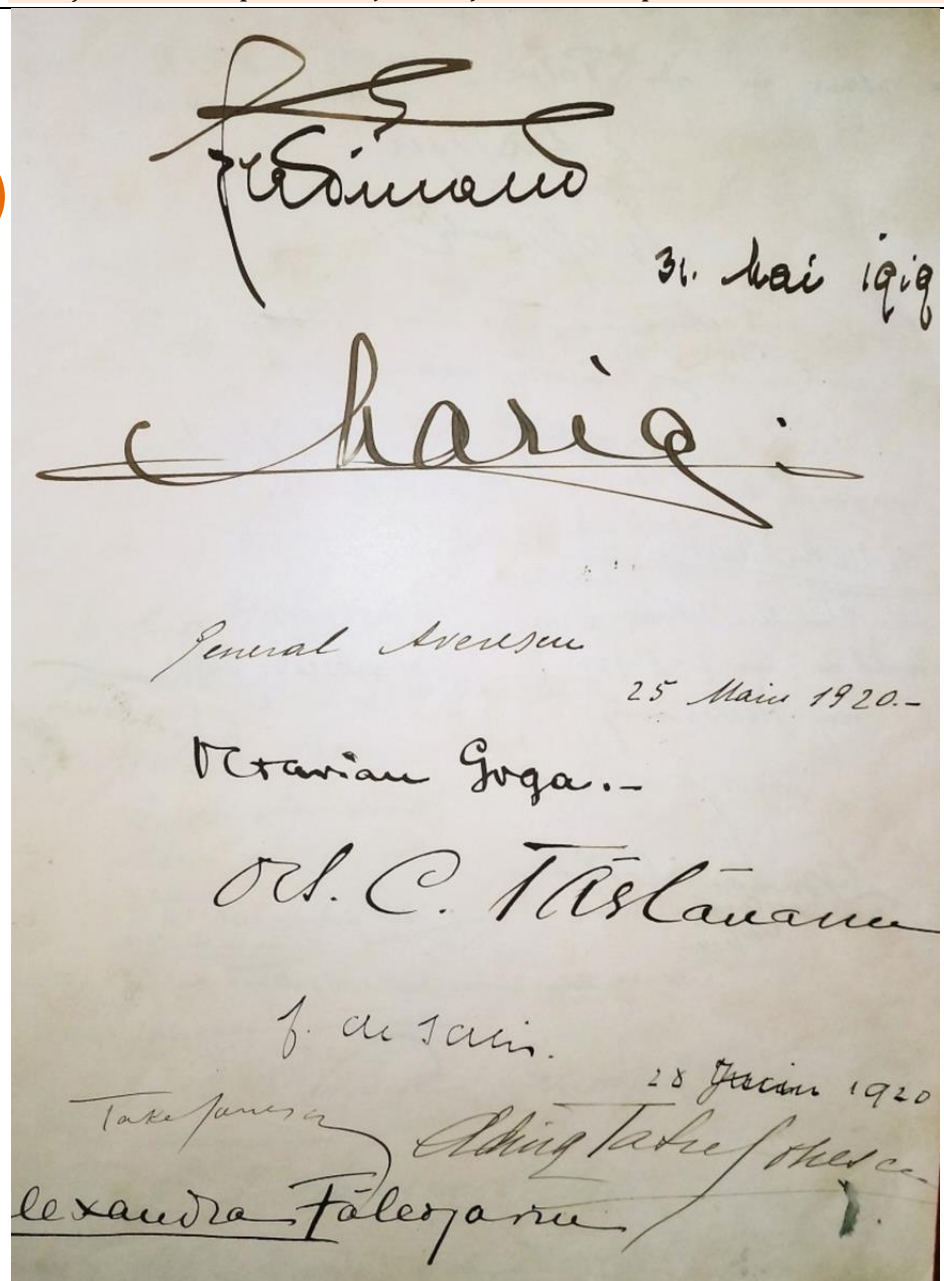 Ferdinand
31. Mai 1919
Maria
General Averescu
25 Maiu 1920.-
Octavian Goga.-
Oct. C. Tăslăuanu
28 1920
Take Ionescu
Take Ionescu
lexandra